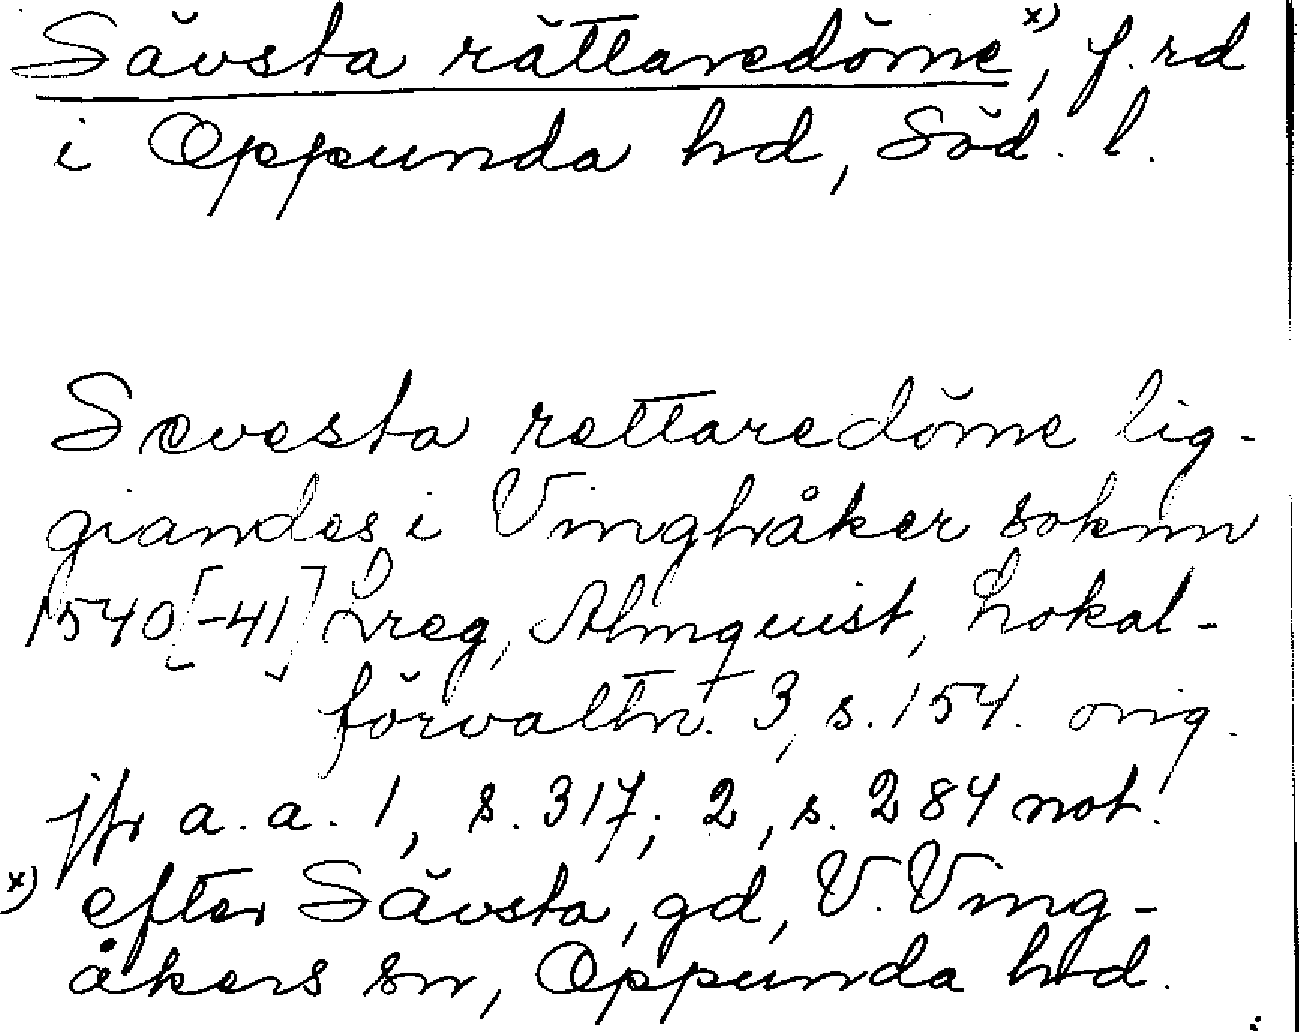 Sävsta rättaredöme x), f.rd
i Oppunda hd, Söd. l.
Sævesta rettaredöme lig-
giandes i Vinghåker soknn
1540[-41] Lreg, Almquist, Lokal-
förvaltn. 3, s. 154. orig.
jfr a. a. 1, s. 317; 2, s. 284 not.
x) efter Sävsta, gd, V. Ving-
åkers sn, Oppunda hd.